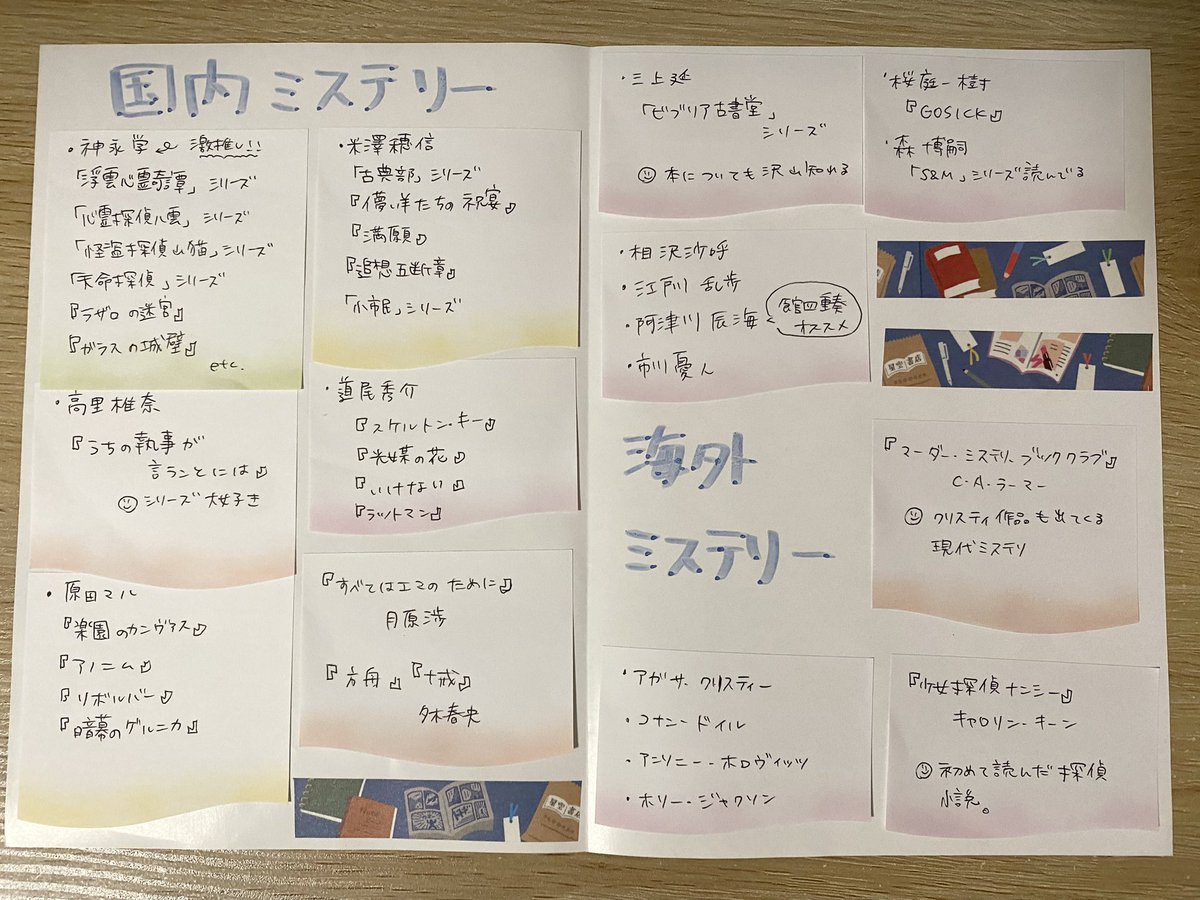 国内ミステリー
・神永学 ← 激推し!!
「浮雲心霊奇譚」シリーズ
「心霊探偵八雲」シリーズ
「怪盗探偵山猫」シリーズ
「天命探偵」シリーズ
『ラザロの迷宮』
『ガラスの城壁』
etc.
・高里椎奈
『うちの執事が
言うことには』
シリーズ大好き
・原田マハ
『楽園のカンヴァス』
『アノニム』
『リボルバー』
『暗幕のゲルニカ』
・米澤穂信
「古典部」シリーズ
『儚い羊たちの祝宴』
『満願』
『追想五断章』
「小市民」シリーズ
・道尾秀介
『スケルトン・キー』
『光媒の花』
『いけない』
『ラットマン』
『すべてはエマのために』
月原渉
『方舟』『十戒』
夕木春央
星空書店
・三上延
「ビブリア古書堂」
シリーズ
本についても沢山知れる
・桜庭一樹
『GOSICK』
・森博嗣
「S&M」シリーズ読んでる
・相沢沙呼
・江戸川乱歩
・阿津川辰海
館四重奏
オススメ
・市川憂人
星空書店
海外
ミステリー
『マーダー・ミステリ・ブッククラブ』
C・A・ラーマー
クリスティ作品も出てくる
現代ミステリ
・アガサ・クリスティー
・コナン・ドイル
・アンソニー・ホロヴィッツ
・ホリー・ジャクソン
『少女探偵ナンシー』
キャロリン・キーン
初めて読んだ探偵
小説。